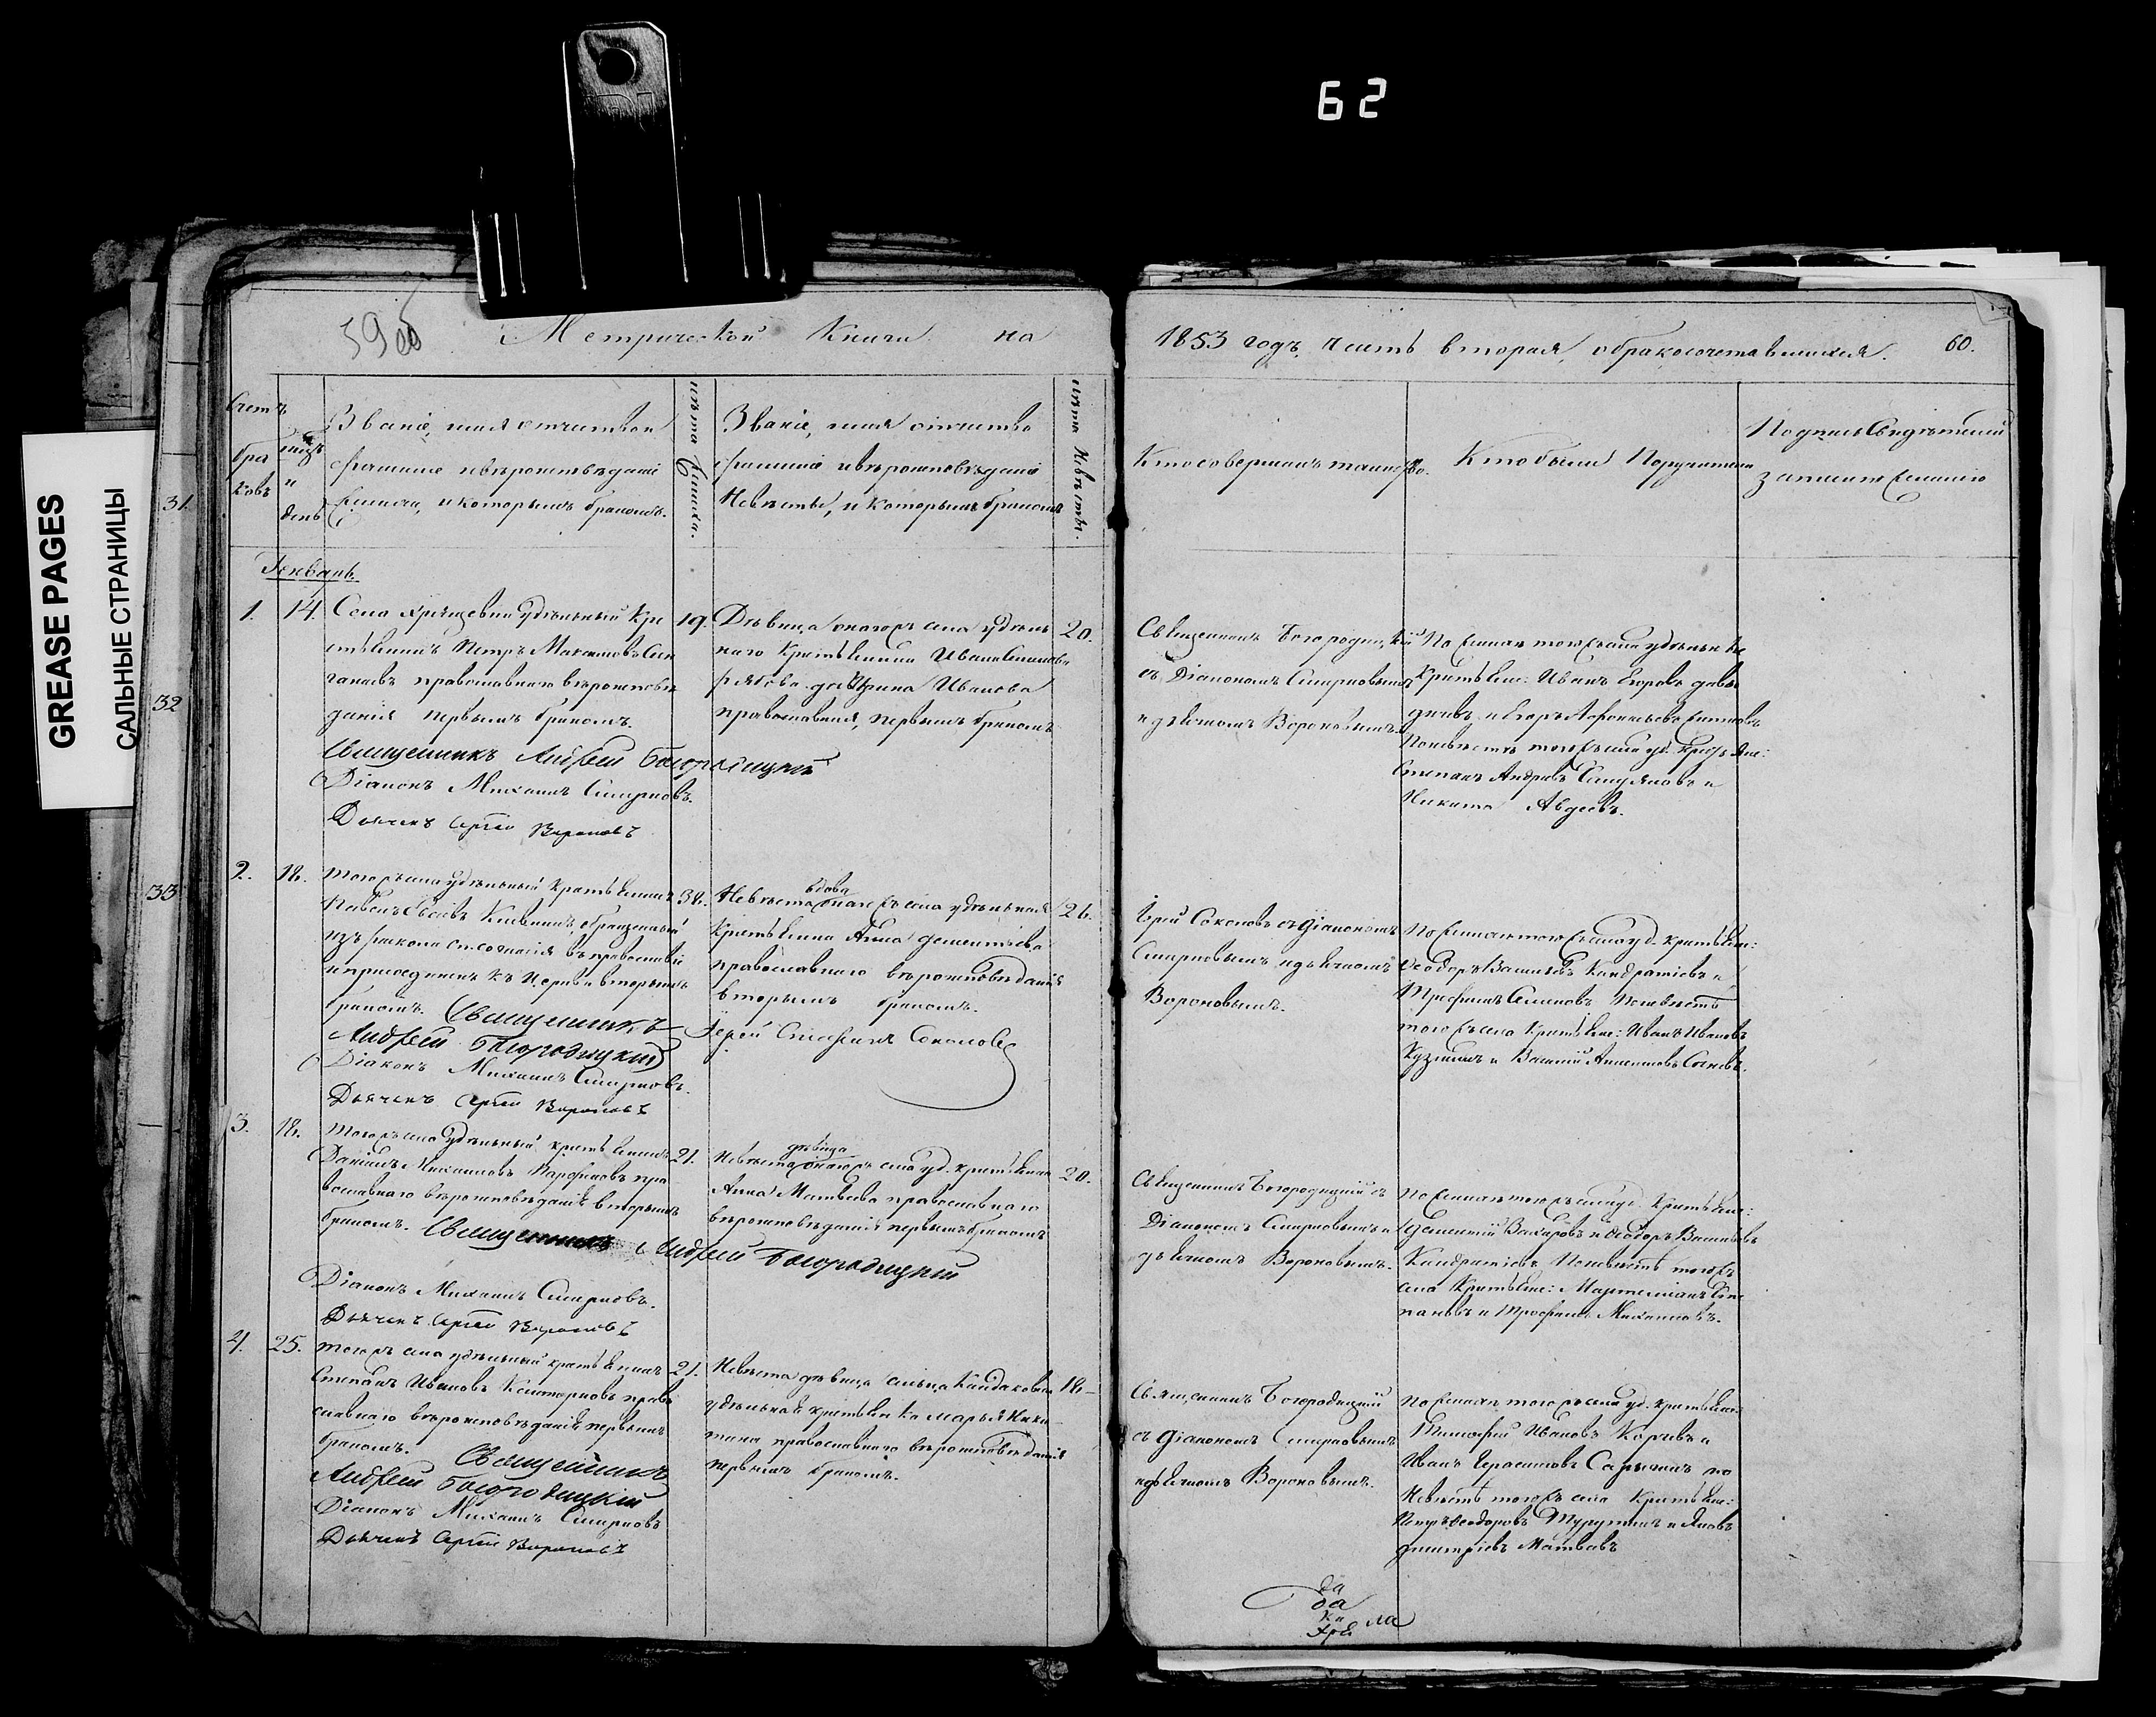 62
GREASE PAGES
САЛЬНЫЕ СТРАНИЦЫ
31
32
33
59об
Метрической Книги на
1853 годъ, часть вторая, о бракосочетавшихся.
60.
Счетъ браковъ
мцъ и день
Званіе, имя отчество
фамилія и вѣроисповѣданіе
Жениха, и которымъ бракомъ.
лѣта Жениха.
Званіе, имя отчество
фамилія и вѣроисповѣданіе
Невѣсты, и которымъ бракомъ
лѣта Невѣсты.
Кто совершалъ таинство.
Кто были Поручители
Подпись Свидѣтелей
записи по желанію
Генварь
1.
14.
Села Хрящевки удѣльный Кре
стьянинъ Петръ Максимовъ
православнаго вѣроисповѣ
данія первымъ бракомъ.
19.
Дѣвица онагожъ села удѣль
наго Крестьянина Ивана
дочь Ирина Иванова
православная, первымъ бракомъ
20.
Священникъ Андрей Богородицкій
Діаконъ Михаилъ Смирновъ.
Дьячекъ Сергей Вороновъ
Священникъ Богородицкій
съ Діакономъ Смирновымъ
и дьячкомъ Вороновымъ.
По Женихѣ тогожъ села удѣльные
Крестьяне: Иванъ Егоровъ
и Егоръ
По невѣстѣ тогожъ села уд. Крестьяне:
Степанъ Андреевъ и
Никита Авдеевъ.
2.
18.
Тогожъ села удѣльный Крестьянинъ
Павелъ обращенный
изъ раскола въ православіе
и присоединенъ къ Церкви вторымъ
бракомъ. Священникъ
Андрей Богородицкій
Діаконъ Михаилъ Смирновъ.
Дьячекъ Сергей Вороновъ
38.
вдова
Невѣста онагожъ села удѣльная
Крестьянка Анна Дементьева
православнаго вѣроисповѣданія
вторымъ бракомъ.
Іерей Соколовъ
26.
Іерей Соколовъ съ діакономъ
Смирновымъ и дьячкомъ
Вороновымъ.
По Женихѣ тогожъ села уд. крестьяне:
Ѳеодоръ Васильевъ Кандратьевъ и
Трофимъ Семеновъ По невѣстѣ
тогожъ села Крестьяне: Иванъ Ивановъ
Кузминъ и Василій
3.
18.
Тогожъ села удѣльный крестьянинъ
Даніилъ Михаиловъ пра
вославнаго вѣроисповѣданія вторымъ
бракомъ. Священникъ Андрей Богородицкій
Діаконъ Михаилъ Смирновъ.
Дьячекъ Сергей Вороновъ
21.
дѣвица
Невѣста онагожъ села уд. крестьянка
Анна Матвеева православнаго
вѣроисповѣданія первымъ бракомъ
20.
Священникъ Богородицкій съ
Діакономъ Смирновымъ и
дьячкомъ Вороновымъ.
По Женихѣ тогожъ села уд. Крестьяне:
Дементій Захаровъ и Ѳеодоръ Васильевъ
Кандратьевъ По невѣстѣ тогожъ
села Крестьяне: Мартемianъ Сте
пановъ и Трофимъ Михаиловъ.
4.
25.
Тогожъ села удѣльный крестьянинъ
Степанъ Ивановъ право
славнаго вѣроисповѣданія первымъ
бракомъ. Священникъ
Андрей Богородицкій
Діаконъ Михаилъ Смирновъ
Дьячекъ Сергей Вороновъ
21.
Невѣста дѣвица сельца Кандаковки
удѣльная крестьянка Марья Ники
тина православнаго вѣроисповѣданія
первымъ бракомъ.
18
Священникъ Богородицкій
съ діакономъ Смирновымъ
и дьячкомъ Вороновымъ.
По Женихѣ тогожъ села уд. крестьяне:
Тимофей Ивановъ и
Иванъ Герасимовъ по
Невѣстѣ тогожъ села Крестьяне:
Петръ Ѳеодоровъ и Яковъ
Дмитріевъ Матвеевъ